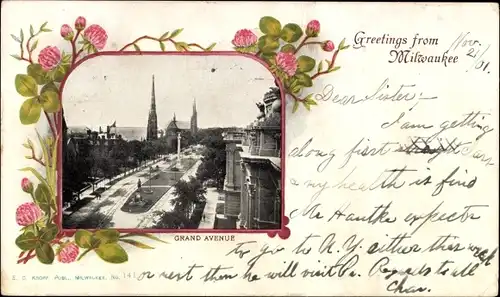 Greetings from
Milwaukee
Nov. 21/
01.
Dear Sister;
I am getting
along first
& my health is find
Mr Hantke expects
GRAND AVENUE
to go to N.Y. either this week
or next then he will visit Pa. Regards to all
Chas.
E. C. KROPP PUBL., MILWAUKEE. No. 141